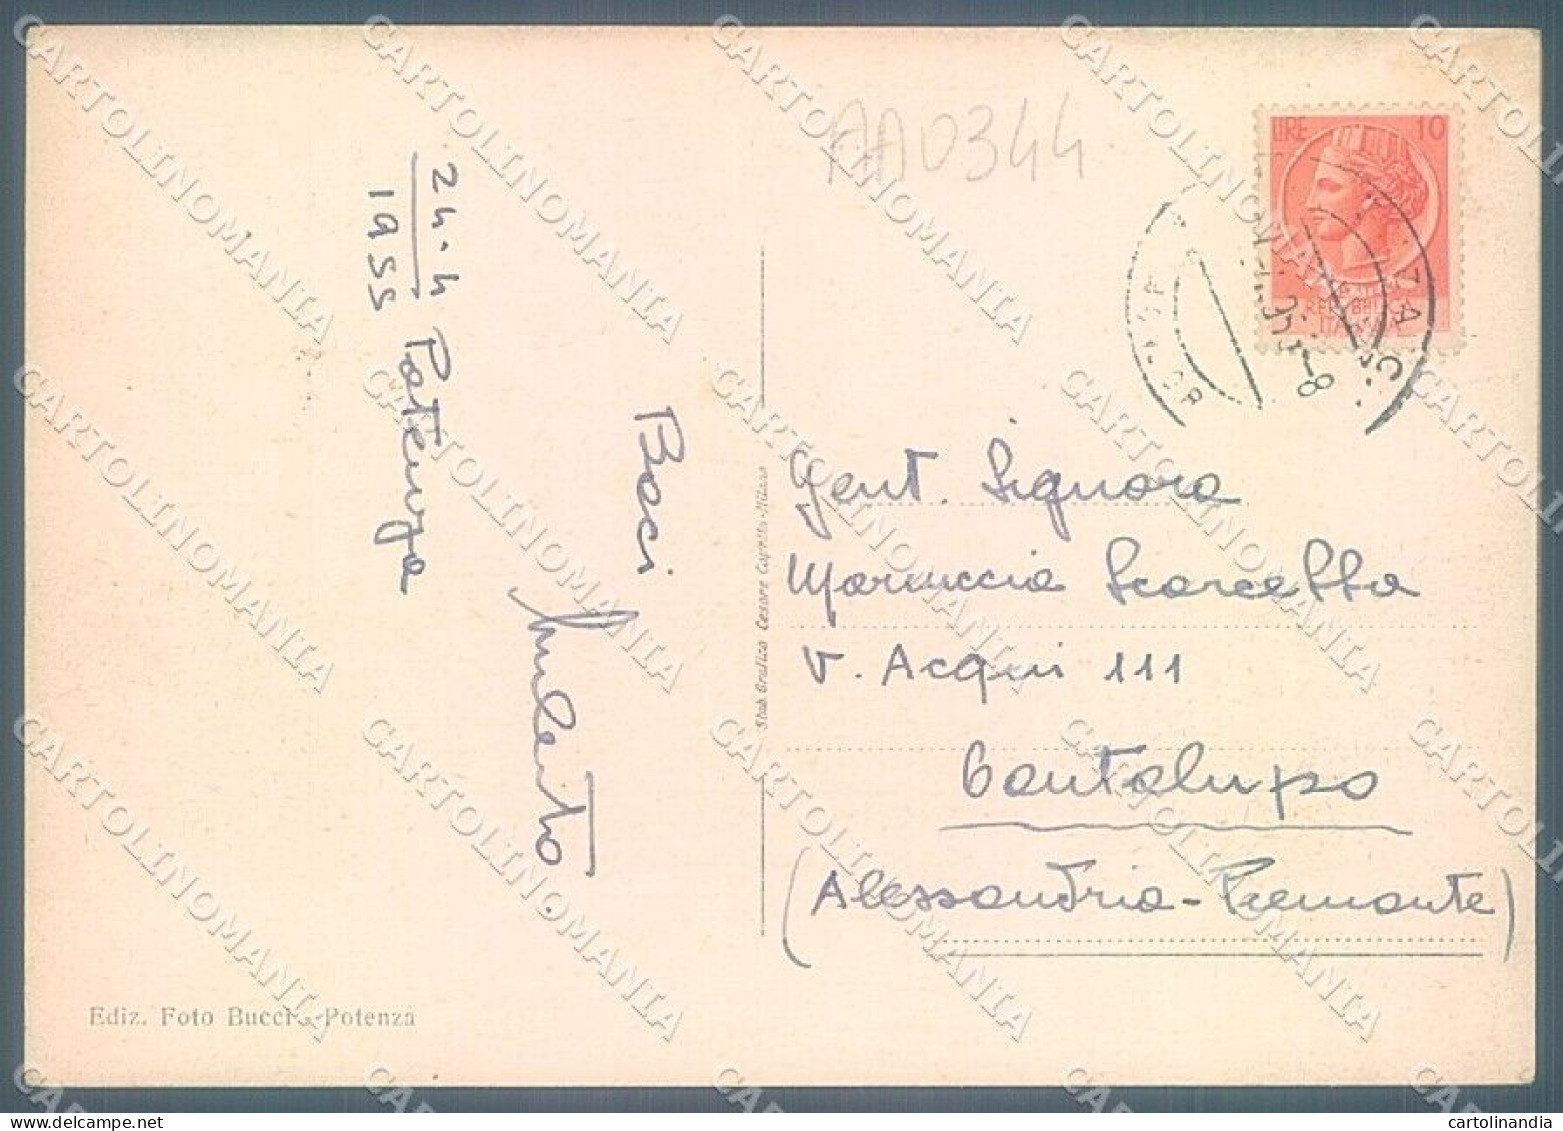 AA0344
LIRE 10
24.4 Potenza
1955
Baci
Umberto
Gent. Signora
Maruccia Scarcella
V. Acqui 111
Cantalupo
(Alessandria-Piemonte)
Stab. Grafico Cesare Capello-Milano
Ediz. Foto Bucci - Potenza
CARTOLINOMANIA
cartolinandia